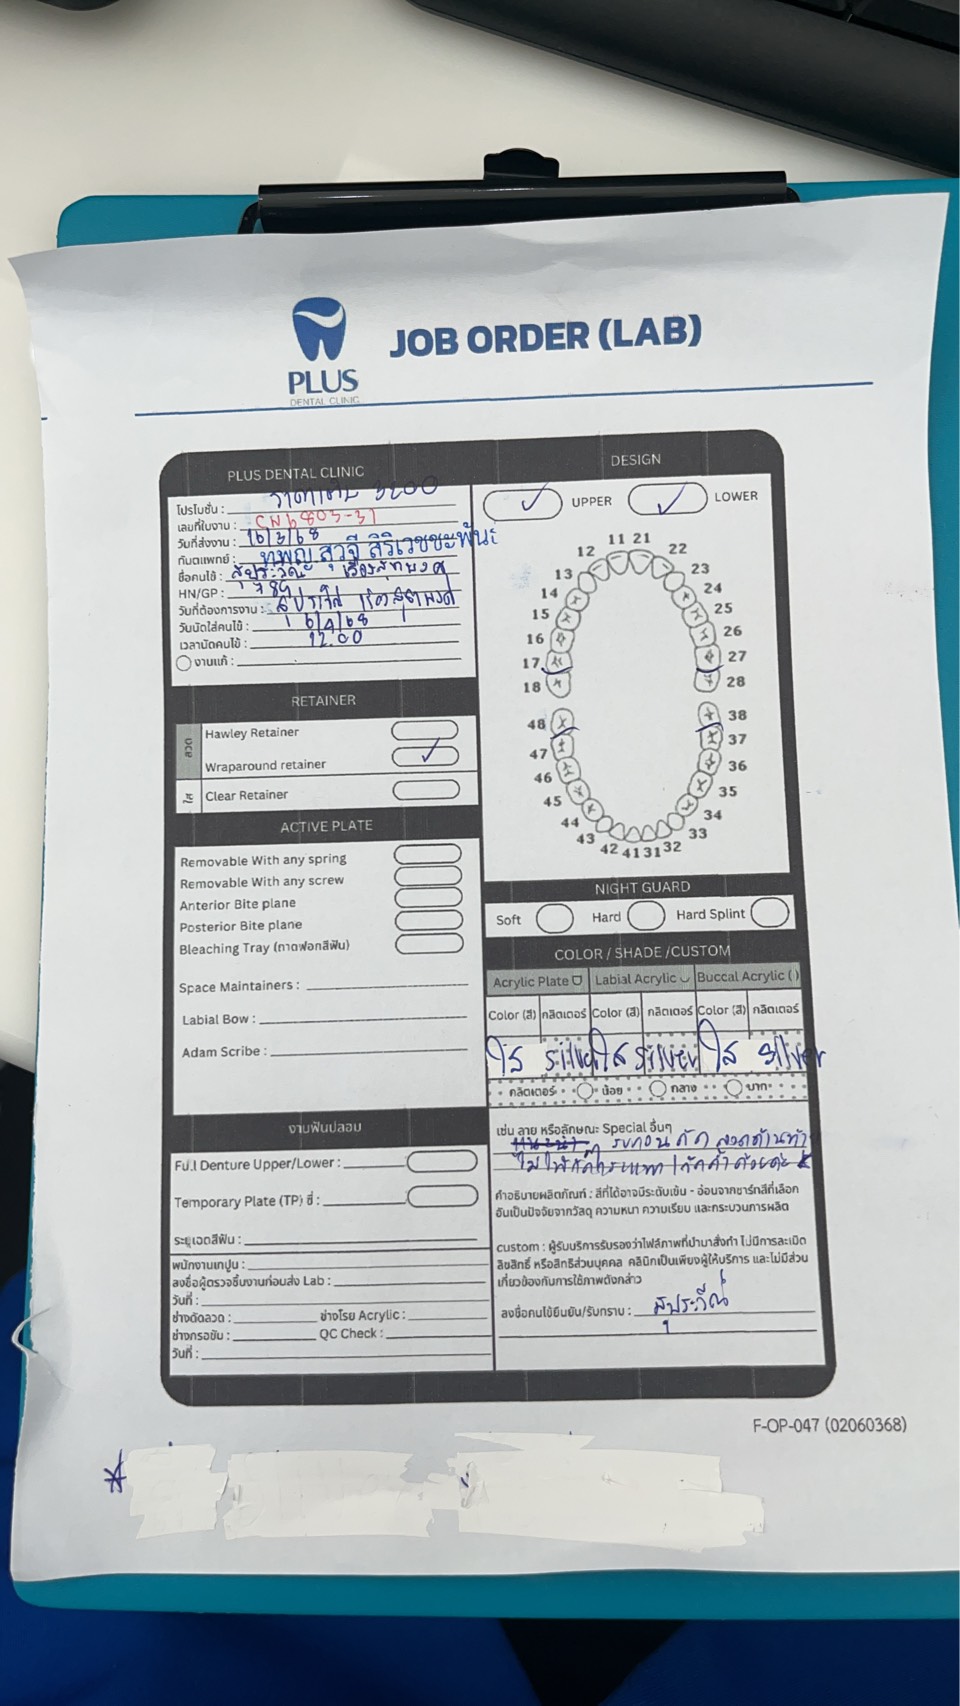 PLUS
DENTAL CLINIC
JOB ORDER (LAB)
PLUS DENTAL CLINIC
โปรโมชั่น : ราคาเต็ม 3200
เลขที่ใบงาน : CN6803-31
วันที่ส่งงาน : 16/3/68
ทันตแพทย์ : ทพญ สุวจี สิริเวชชะพันธ์
ชื่อคนไข้ : สุประวีณ์
HN/GP : 784
วันที่ต้องการงาน :
วันนัดใส่คนไข้ : 6/4/68
เวลานัดคนไข้ : 12.00
งานแก้ :
RETAINER
ลวด
Hawley Retainer
Wraparound retainer
ใส
Clear Retainer
ACTIVE PLATE
Removable With any spring
Removable With any screw
Anterior Bite plane
Posterior Bite plane
Bleaching Tray (ถาดฟอกสีฟัน)
Space Maintainers :
Labial Bow :
Adam Scribe :
งานฟันปลอม
Full Denture Upper/Lower :
Temporary Plate (TP) ซี่ :
ระยุเฉดสีฟัน :
พนักงานเทปูน :
ลงชื่อผู้ตรวจชิ้นงานก่อนส่ง Lab :
วันที่ :
ช่างดัดลวด : ช่างโรย Acrylic :
ช่างกรอขัน : QC Check :
วันที่ :
DESIGN
UPPER LOWER
11 21
12 22
13 23
14 24
15 25
16 26
17 27
18 28
48 38
47 37
46 36
45 35
44 34
43 33
42 41 31 32
NIGHT GUARD
Soft Hard Hard Splint
COLOR / SHADE /CUSTOM
Acrylic Plate Labial Acrylic Buccal Acrylic ( )
Color (สี) กลิตเตอร์ Color (สี) กลิตเตอร์ Color (สี) กลิตเตอร์
ใส silver ใส silver ใส silver
กลิตเตอร์ น้อย กลาง มาก
เช่น ลาย หรือลักษณะ Special อื่นๆ
รบกวน ดัด ลวดด้านท้าย
คำอธิบายผลิตภัณฑ์ : สีที่ได้อาจมีระดับเข้ม - อ่อนจากชาร์ทสีที่เลือก
อันเป็นปัจจัยจากวัสดุ ความหนา ความเรียบ และกระบวนการผลิต
custom : ผู้รับบริการรับรองว่าไฟล์ภาพที่นำมาสั่งทำ ไม่มีการละเมิด
ลิขสิทธิ์ หรือสิทธิส่วนบุคคล คลินิกเป็นเพียงผู้ให้บริการ และไม่มีส่วน
เกี่ยวข้องกับการใช้ภาพดังกล่าว
ลงชื่อคนไข้ยืนยัน/รับทราบ : สุประวีณ์
F-OP-047 (02060368)